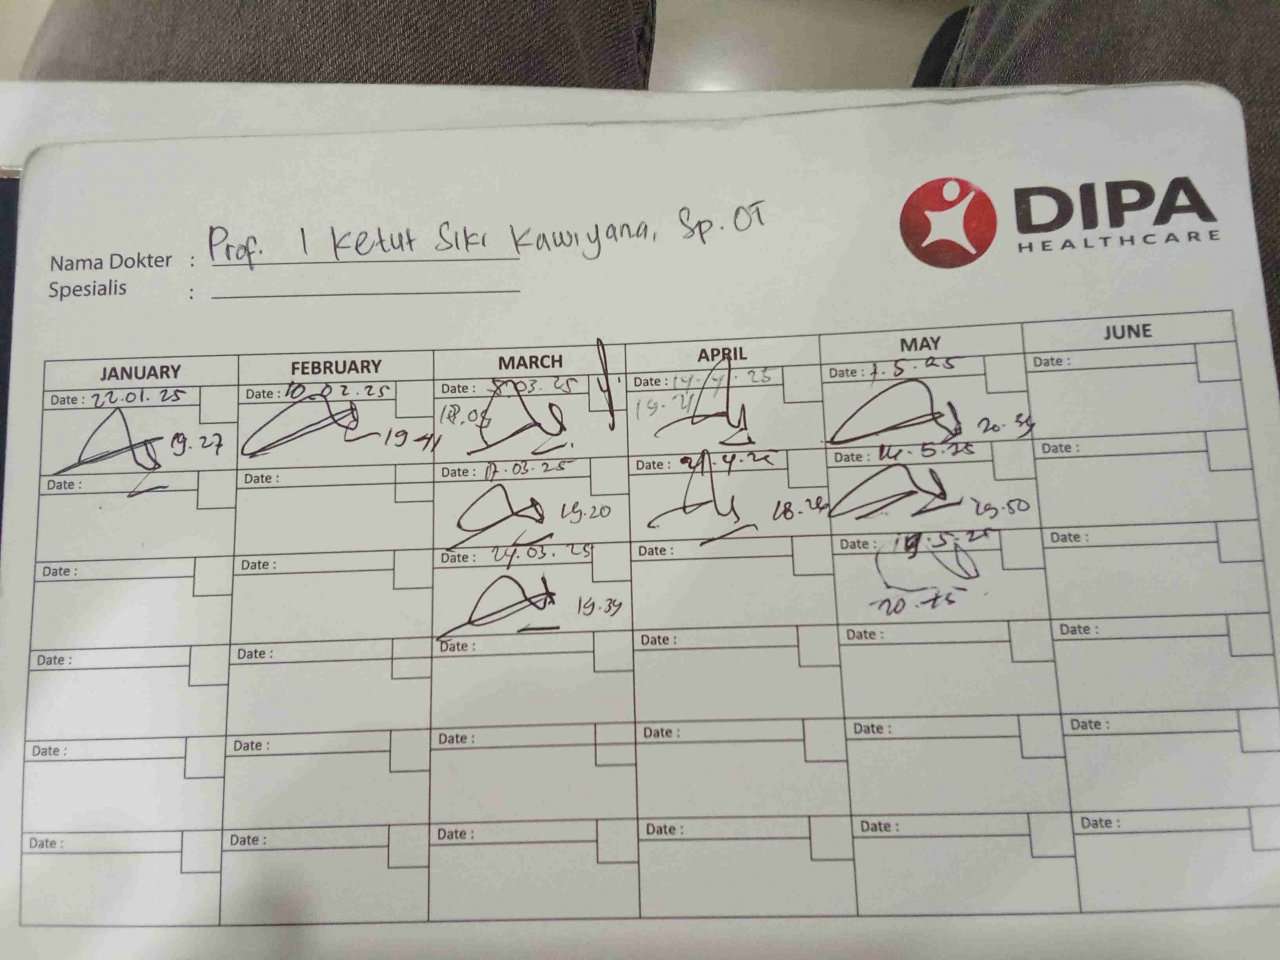 DIPA
HEALTHCARE
Nama Dokter : Prof. I Ketut Siki Kawiyana, Sp.OT
Spesialis :
JANUARY FEBRUARY MARCH APRIL MAY JUNE
Date : 22.01.25 Date : 10.02.25 Date : 8.03.25 Date : 14.4.25 Date : 7.5.25 Date :
19.27 19.41 19.21 20.34
Date : Date : Date : 17.03.25 Date : 21.4.25 Date : 14.5.25 Date :
19.20 18.24 19.50
Date : Date : Date : 24.03.25 Date : Date : 19.5.25 Date :
19.39 20.15
Date : Date : Date : Date : Date : Date :
Date : Date : Date : Date : Date : Date :
Date : Date : Date : Date : Date : Date :